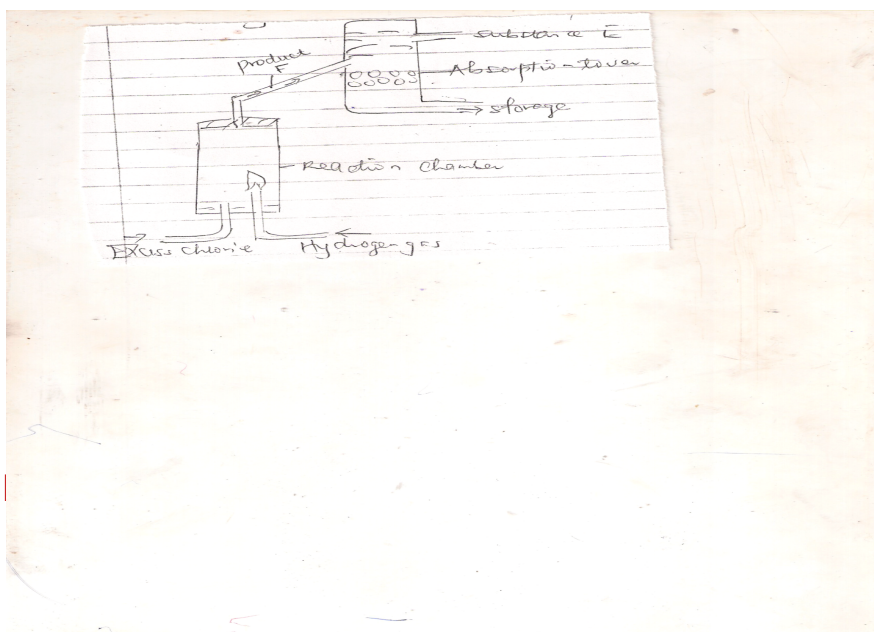 substance E
product
F
Absorption tower
storage
Reaction Chamber
Excess chlorine
Hydrogen gas